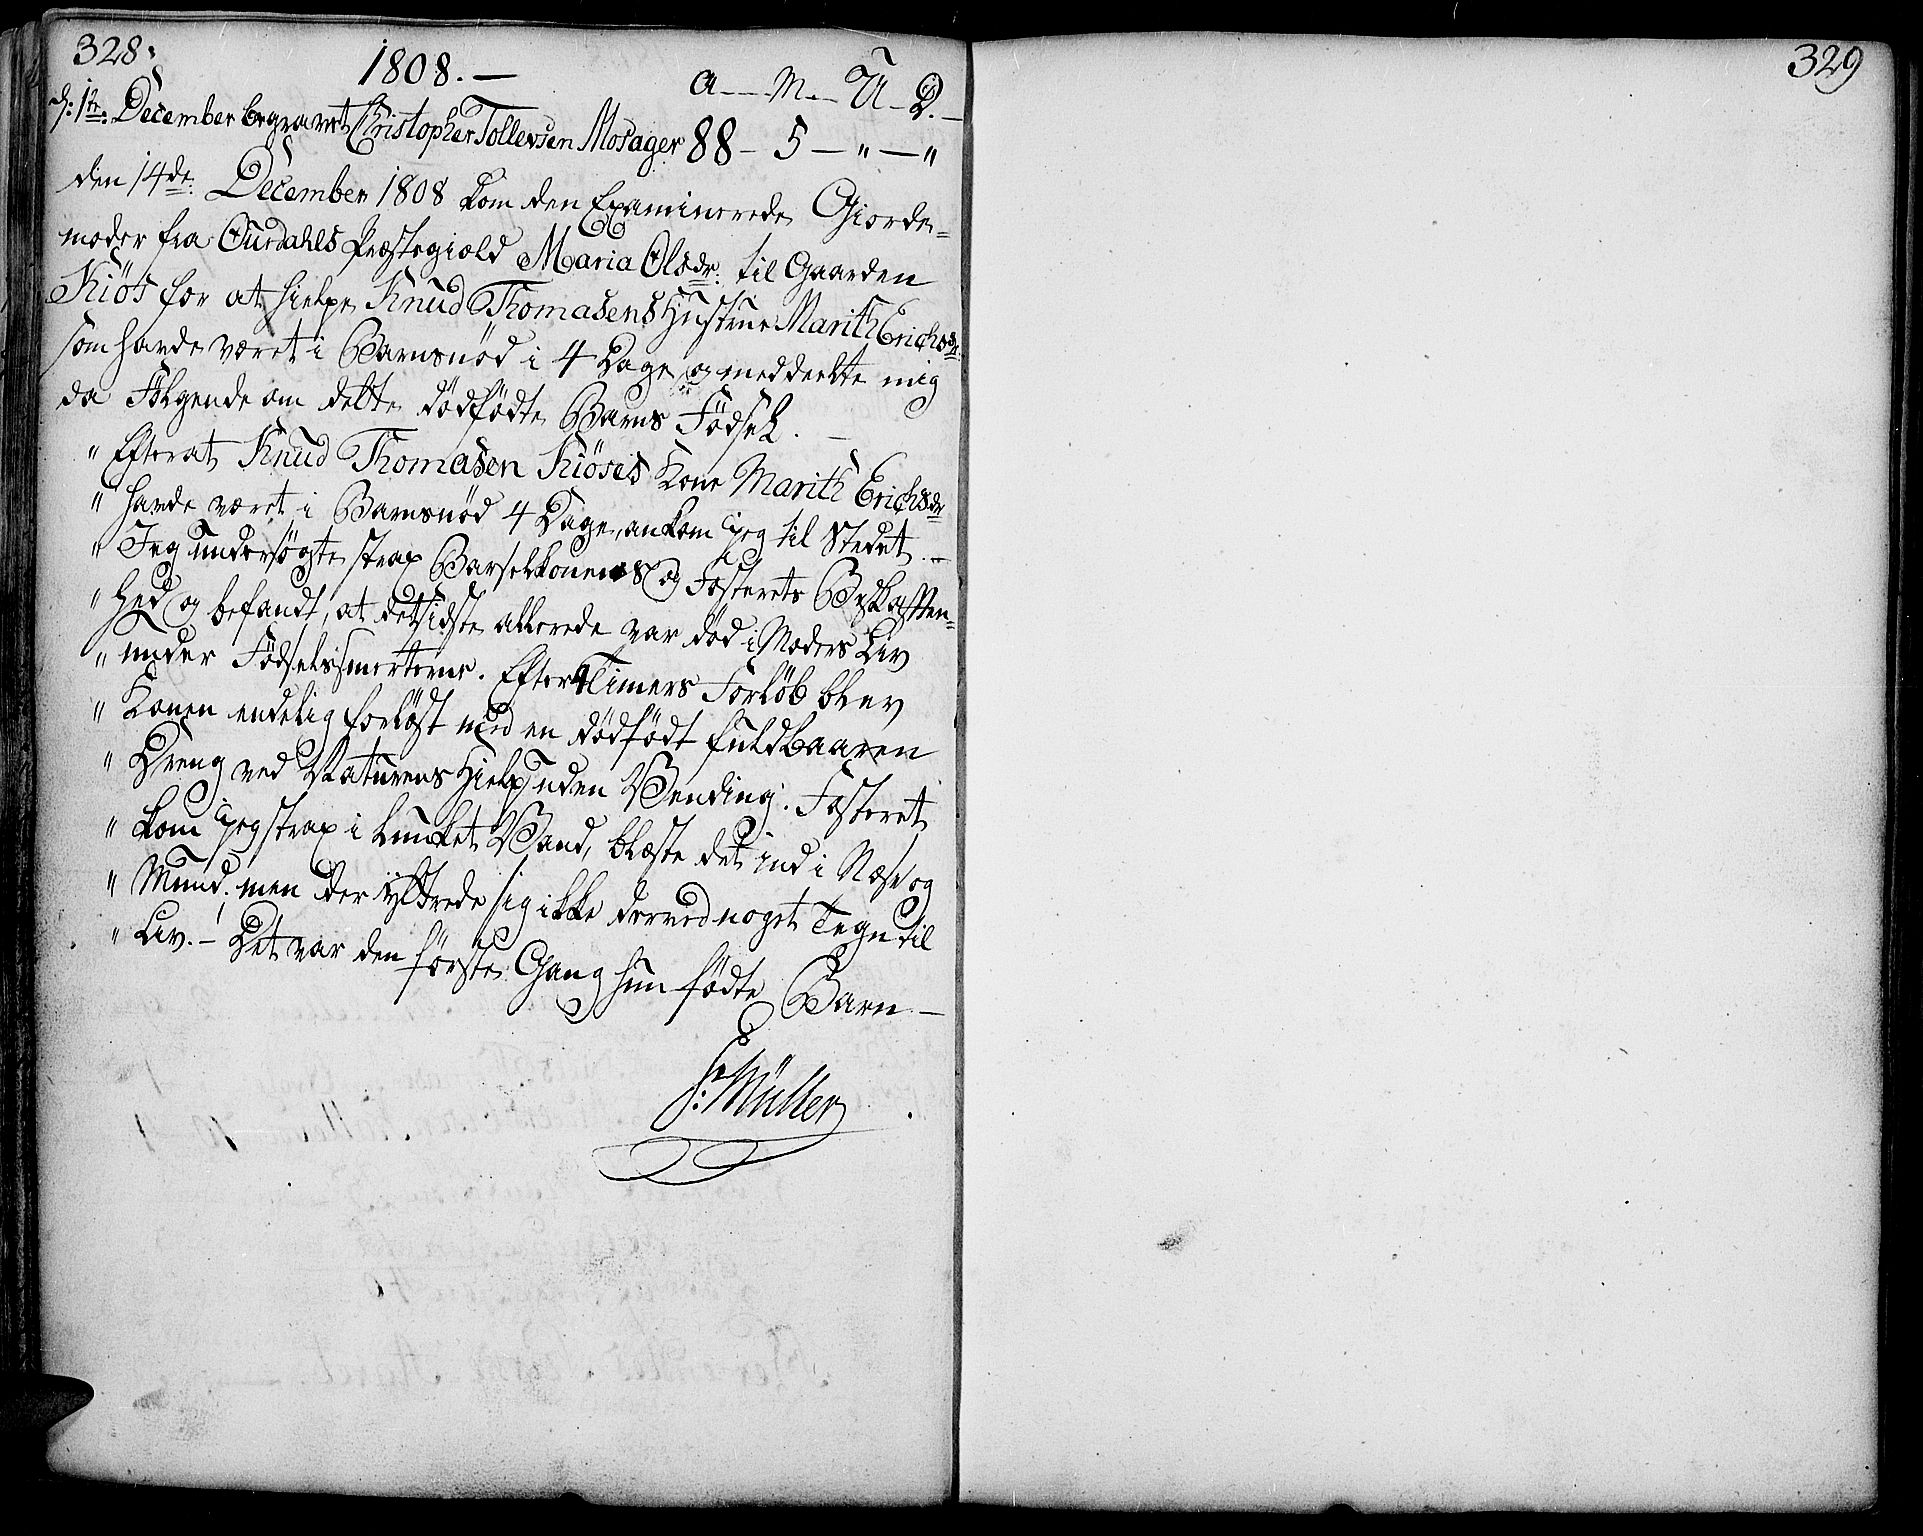 328.
1808. —
A — M. — U — D. —
d: 1te: December begravet Christopher Tollevsen Mosager 88 — 5 — " — "
den 14de: December 1808 kom den Examinerede Giorde=
moder fra Ourdahls Præstegiæld Maria Olsdr: til Gaarden
Kiös for at hielpe Knud Thomasens Hustrue Marith Erichsdr:
som havde været i Barnsnød i 4 Dage og meddeelte mig
da Følgende om dette dødfødte Barns Fødsel. —
" Efterat Knud Thomasen Kiöses Kone Marith Erichsdr
" havde været i Barnsnød 4 Dage, ankom jeg til Stedet. —
" Jeg undersøgte strax Barselkonens og Fosterets Beskaffen=
" hed og befandt, at det sidste allerede var død i Moders Liv
" under Fødselssmerterne. Efter 4 Timers Forløb blev
" Konen endelig forløst med en dødfødt fuldbaaren
" Dreng ved Naturens Hielp uden Vending. Fosteret
" kom jeg strax i lunket Vand, blæste det ind i Næse og
" Mund; men der yttrede sig ikke derved noget Tegn til
" Liv. — Det var den første Gang hun fødte Barn. —
S: Müller
329